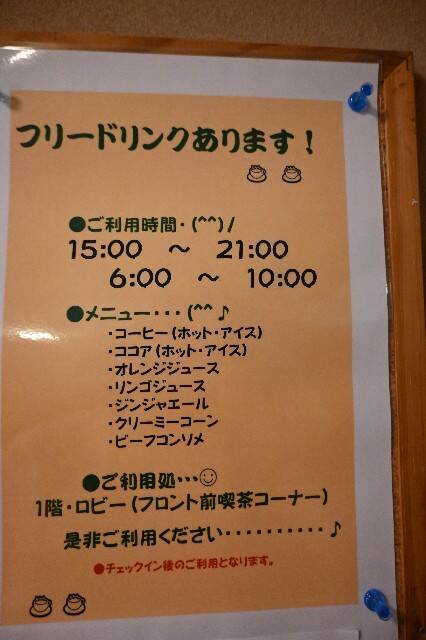 フリードリンクあります！
●ご利用時間・(^^)/
15:00　～　21:00
6:00　～　10:00
●メニュー・・・(^^♪
・コーヒー(ホット・アイス)
・ココア(ホット・アイス)
・オレンジジュース
・リンゴジュース
・ジンジャエール
・クリーミーコーン
・ビーフコンソメ
●ご利用処…☺
1階・ロビー(フロント前喫茶コーナー)
是非ご利用ください・・・・・・・・・・♪
●チェックイン後のご利用となります。